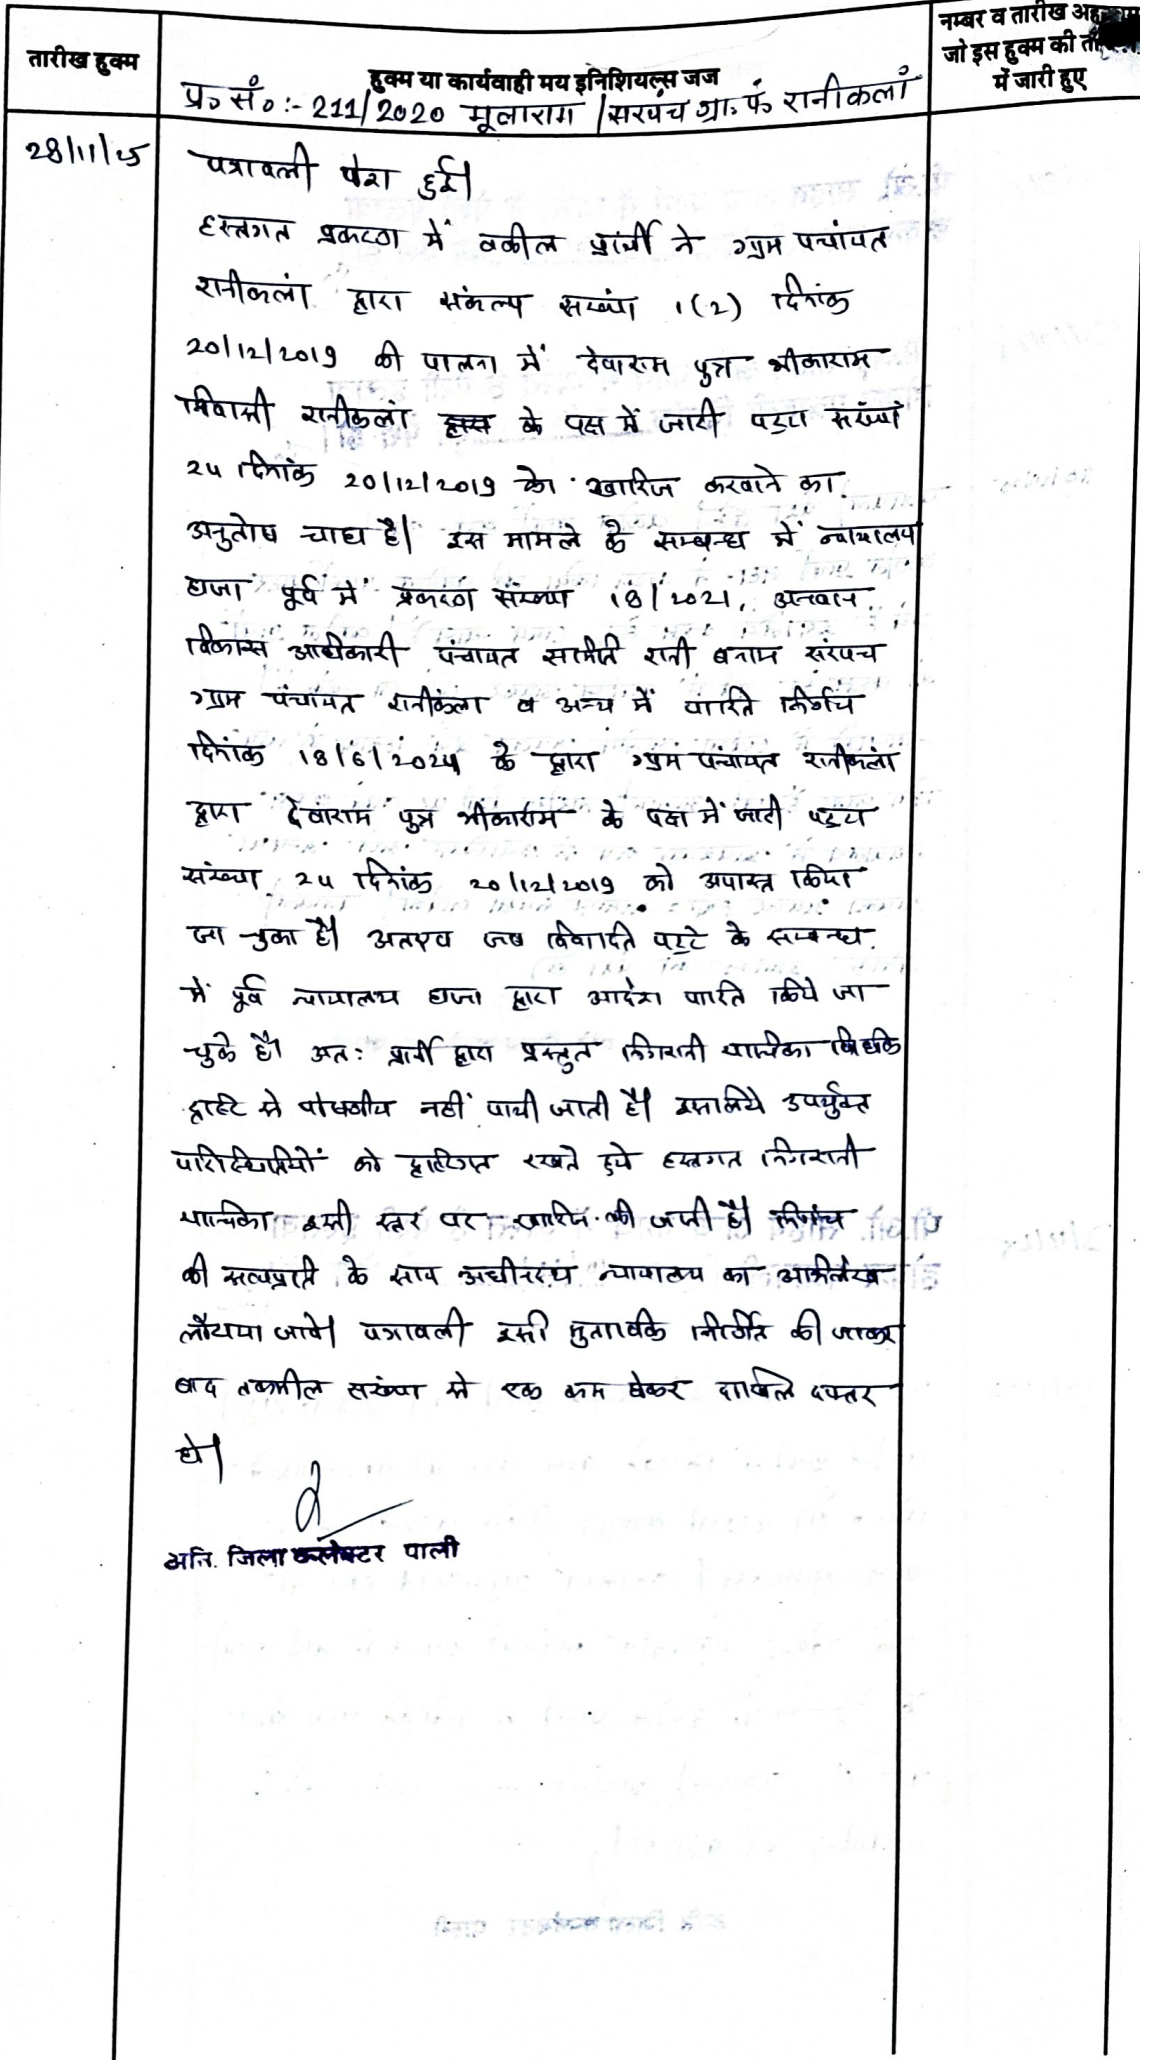 नम्बर व तारीख
तारीख हुक्म
हुक्म या कार्यवाही मय इनिशियल्स जज
जो इस हुक्म की
में जारी हुए
प्र. सं. :- 211/2020 मूलाराम / सरपंच ग्रा. पं. रानीकलां
28/11/25
पत्रावली पेश हुई।
हस्तगत प्रकरण में वकील प्रार्थी ने ग्राम पचांयत
रानीकलां द्वारा संकल्प संख्या 1(2) दिनांक
20/12/2019 की पालना में देवाराम पुत्र भीकाराम
निवासी रानीकलां के पक्ष में जारी पट्टा संख्या
24 दिनांक 20/12/2019 को खारिज करवाने का
अनुतोष चाहा है। इस मामले के सम्बन्ध में न्यायालय
हाजा पूर्व में प्रकरण संख्या 18/2021, अनवान
विकास अधिकारी पंचायत समिति रानी बनाम सरपंच
ग्राम पंचायत रानीकंला व अन्य में पारित निर्णय
दिनांक 18/6/2024 के द्वारा ग्राम पंचायत रानीकलां
द्वारा देवाराम पुत्र भीकाराम के पक्ष में जारी पट्टा
संख्या 24 दिनांक 20/12/2019 को अपास्त किया
जा चुका है। अतएव जब विवादित पट्टे के सम्बन्ध
में पूर्व न्यायालय हाजा द्वारा आदेश पारित किये जा
चुके है। अतः प्रार्थी द्वारा प्रस्तुत निगरानी याचिका विधिक
दृष्टि से पोषणीय नहीं पायी जाती है। इसलिये उपर्युक्त
परिस्थितियों को दृष्टिगत रखते हुये हस्तगत निगरानी
याचिका इसी स्तर पर खारिज की जाती है। निर्णय
की सत्यप्रति के साथ अधीनस्थ न्यायालय का अभिलेख
लौटाया जावे। पत्रावली इसी मुताबिक निर्णित की जाकर
बाद तकमील संख्या से एक कम होकर दाखिल दफ्तर
हो।
अति. जिला कलेक्टर पाली